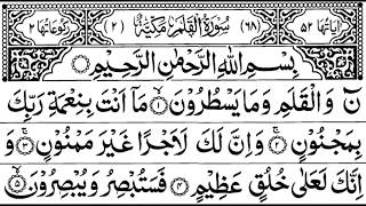 اٰيَاتُهَا ٥٢ (٦٨) سُوْرَةُ الْقَلَمِ مَكِّيَّةٌ (٢) رُكُوْعَاتُهَا ٢
بِسْمِ اللهِ الرَّحْمٰنِ الرَّحِيْمِ
نٓ وَالْقَلَمِ وَمَا يَسْطُرُوْنَ ۝١ مَاۤ اَنْتَ بِنِعْمَةِ رَبِّكَ
بِمَجْنُوْنٍ ۝٢ وَاِنَّ لَكَ لَاَجْرًا غَيْرَ مَمْنُوْنٍ ۝٣ وَ
اِنَّكَ لَعَلٰى خُلُقٍ عَظِيْمٍ ۝٤ فَسَتُبْصِرُ وَيُبْصِرُوْنَ ۝٥